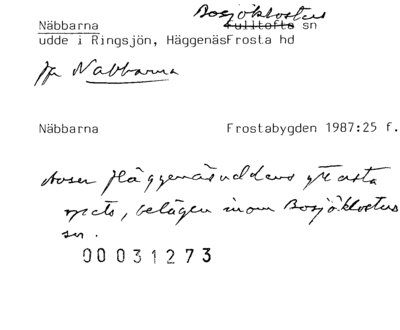 Bosjöklosters
Näbbarna fulltofta sn
udde i Ringsjön, HäggenäsFrosta hd
Nabbarna
Näbbarna Frostabygden 1987:25 f.
avser Häggenäsuddens yttersta
spets, belägen inom Bosjöklosters
sn.
00031273